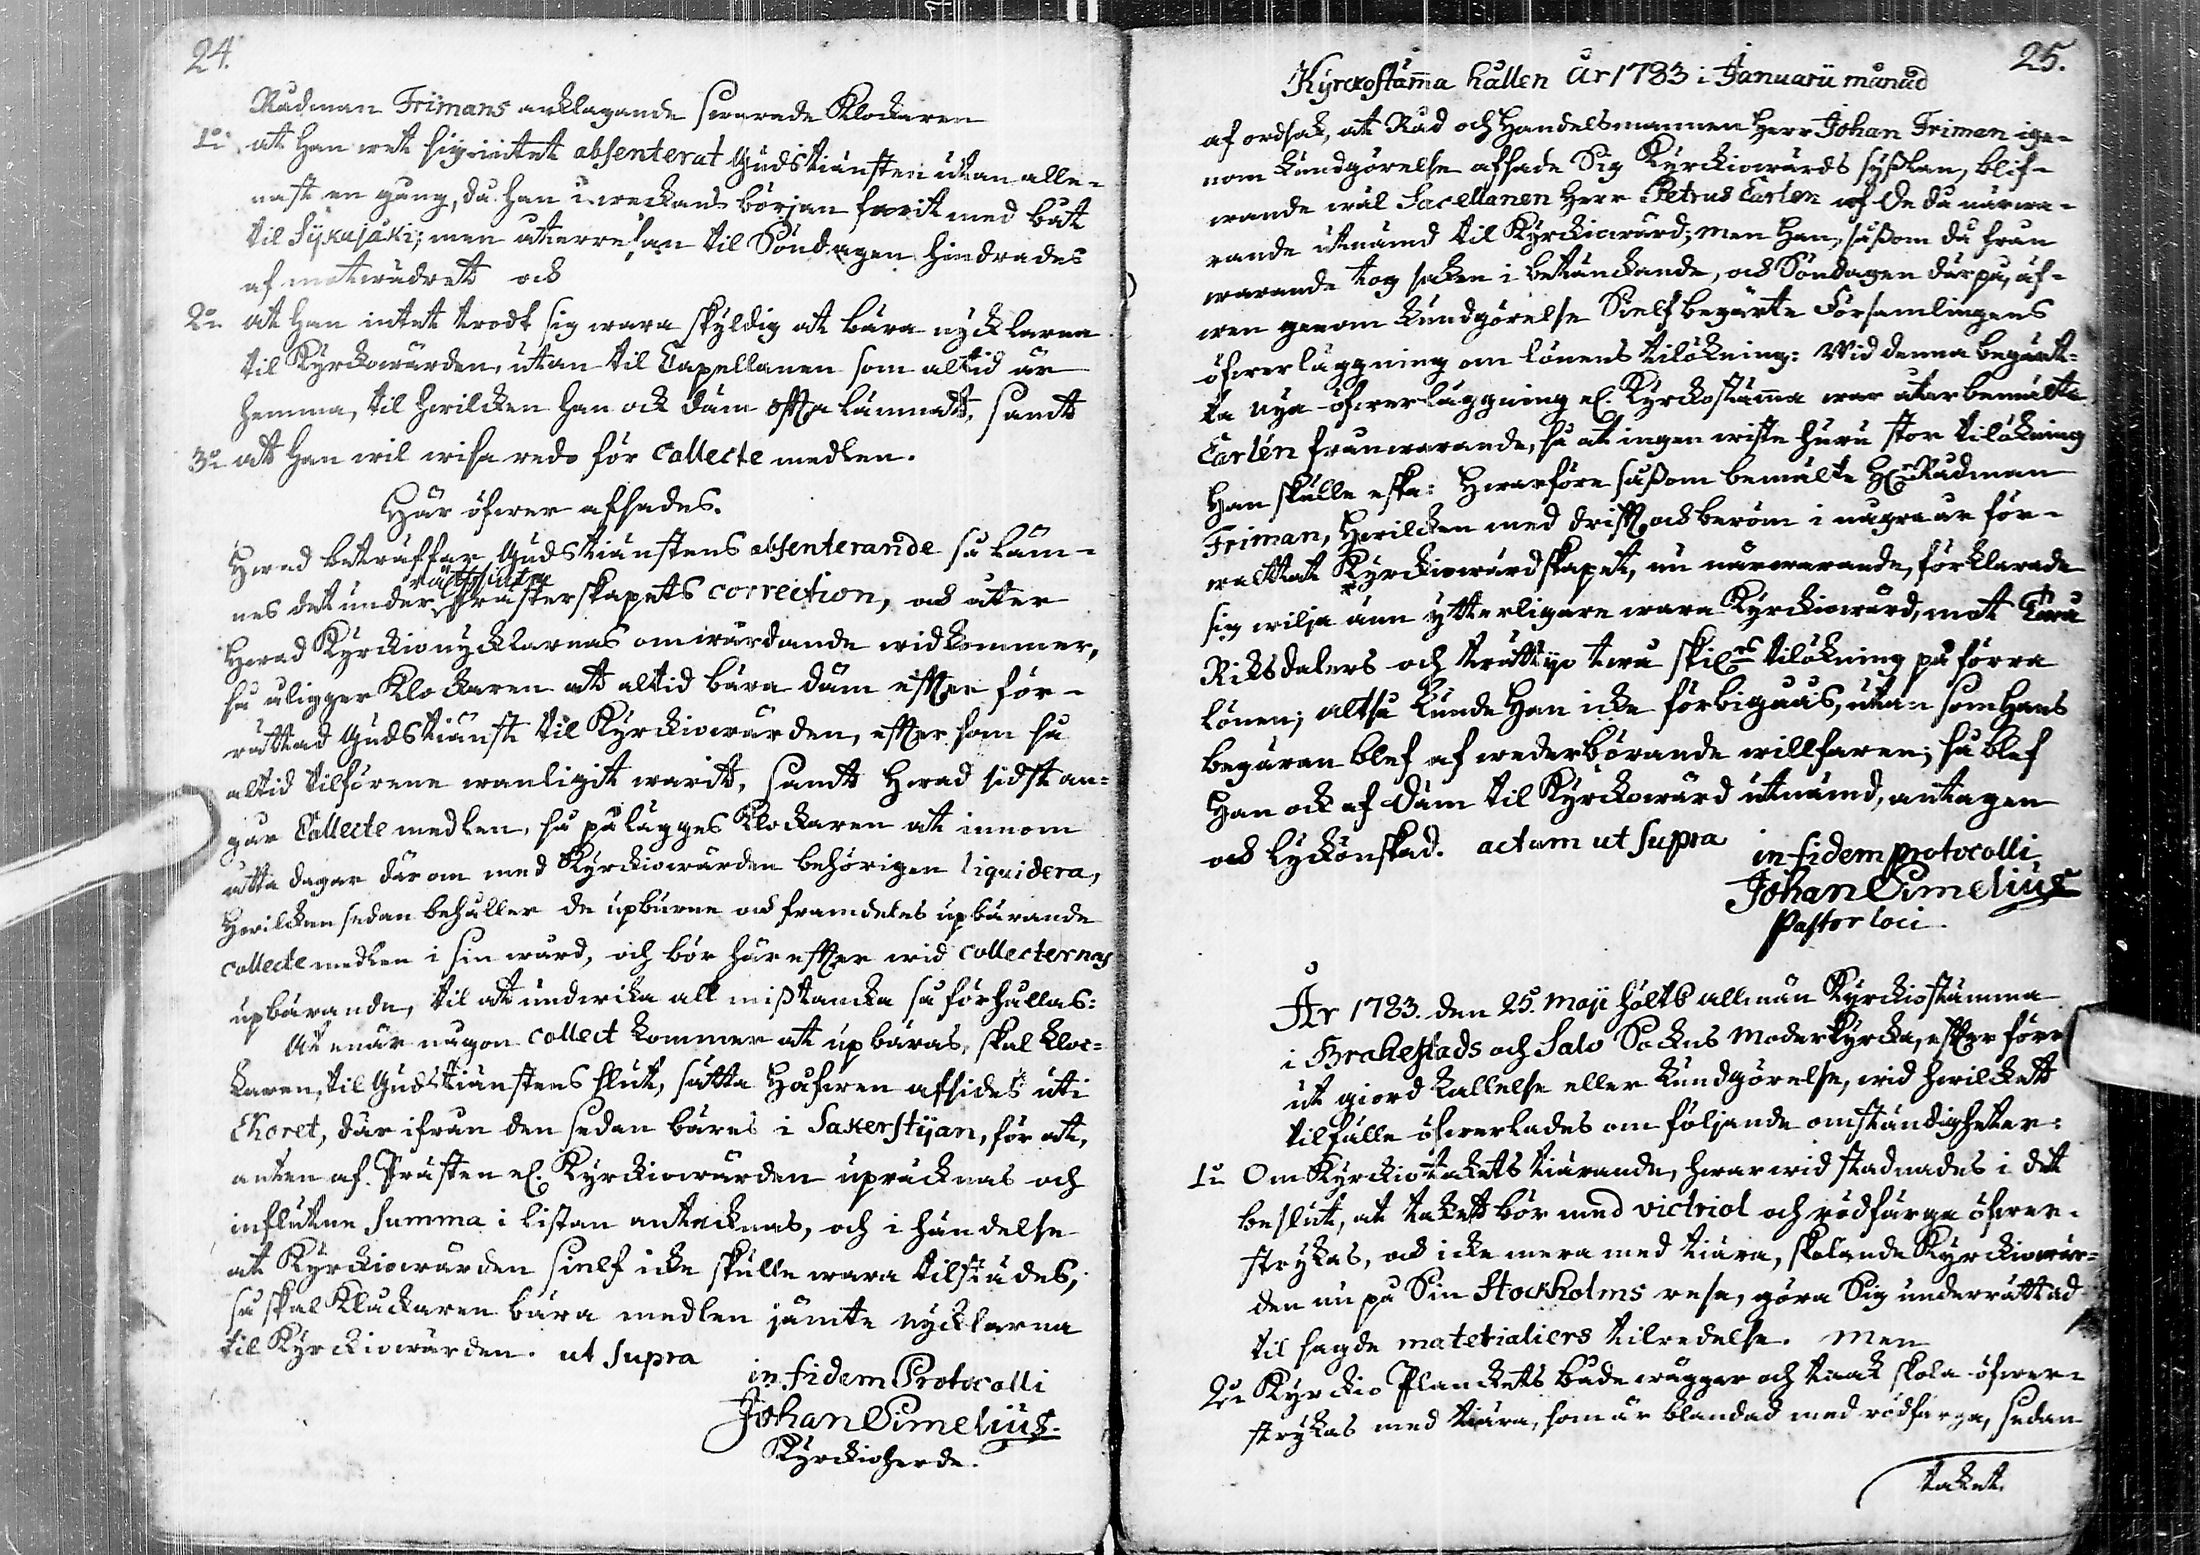 24.
Rådman Frimans anklagande swarade Klockaren
1:o at Han wet sig intet absenterat Gudstiänsten utan alle-
nast en gång, då han i weckans början farit med båt
til Sijkajåki; men återresan til Söndagen hindrades
af motwädrett och
2:o at Han intet trodt sig wara skyldig at bära nycklarna
til Kyrckowärden, utan til Capellanen som altid är
hemma, til hwilcken han ock däm ofta lämnatt, samt
3:o att Han wil wisa redo för Collecte medlen.
Här öfwer afsades.
Hwad beträffar Gudstiänstens absenterande så läm-
rättsinta
nes det under Prästerskapets correction, och åter
Hwad Kyrckionycklarnas omwårdande widkommer,
så åligger Klockaren att altid bära däm efter för-
rättad Gudstiänst til Kyrckiowärden, efter som så
altid tilförene wanligit warit, samt Hwad sidst an-
går Collecte medlen, så pålägges Klockaren at innom
åtta dagar där om med Kyrckiowärden behörigen liquidera,
Hwilcken sedan behåller de upburne och framdeles upbärande
collecte medlen i sin wård, och bör här efter wid collecternas
upbärande, til at undwika all misstancka så förhållas:
At enär någon collect kommer at upbäras, skal Kloc-
karen, til Gudstiänstens slut, sätta Håfwen afsides uti
Choret, där ifrån den sedan bäres i Sakerstijan, för att,
anten af Prästen el. Kyrckiowärden upräcknas och
influtne Summa i listan antecknas, och i händelse
at Kyrckiowärden sielf icke skulle wara tilstädes,
så skal Klåckaren bära medlen jämte nycklarna
til Kyrckiowärden. ut supra
in fidem Protocolli
Johan Simelius.
Kyrckioherde.
25.
Kyrckostäma hållen År 1783 i Januarii månad
af ordsak, at Råd och Handelsmannen Herr Johan Friman ige-
nom Kundgörelse afsade Sig Kyrckiowärds sysslan, blif-
wande wäl Sacellanen Herr Petrus Carlén af De då närwa-
rande utnämd til Kyrckiowärd; men Han, såssom då från
warande tog saken i betänckande, och Söndagen därpå, äf-
wen genom Kundgörelse Sielf begärte Församlingens
öfwerläggning om lönens tilökning: Wid denna begärt-
ta nya öfwerläggning el. Kyrckostäma war åter bemälte
Carlén frånwarande, så at ingen wiste huru stor tilökning
Han skulle eska: Hwarföre såssom bemälte Hr Rådman
Friman, Hwilcken med drift och beröm i några år för-
waltat Kyrckiowärdskapet, nu närwarande, förklarade
sig wilja änn ytterligare wara Kyrckiowärd, mot Twå
Riksdalers och trättijo twå skil:s tilökning på förra
lönen; altså kunde Han icke förbigåås, utan som Hans
begäran blef af wederbörande willfaren; så blef
Han ock af Däm til Kyrckowärd utnämd, antagen
och lyckönskad. actum ut supra
in fidem protocolli
Johan Simelius
Pastor loci.
År 1783. den 25. Maji höltb allmän Kyrckiostämma
i Brahestads och Salo Sockns Moderkyrcka, efter förr
ut giord kallelse eller Kundgörelse, wid hwilckett
tilfälle öfwerlades om följande omständigheter:
1:o Om Kyrckiotakets tiärande, hwarwid stadnades i det
beslut, at takett bör med victriol och rödfärga öfwer-
strykas, och icke mera med tiära, skolande Kyrckiowär-
den nu på Sin Stockholms resa, göra Sig underrättad
til sagde materialiers tilredelse. Men
2:o Kyrckio Planckets både wäggar och taak skola öfwer-
strykas med tiära, som är blandad med rödfärga, sedan
taket